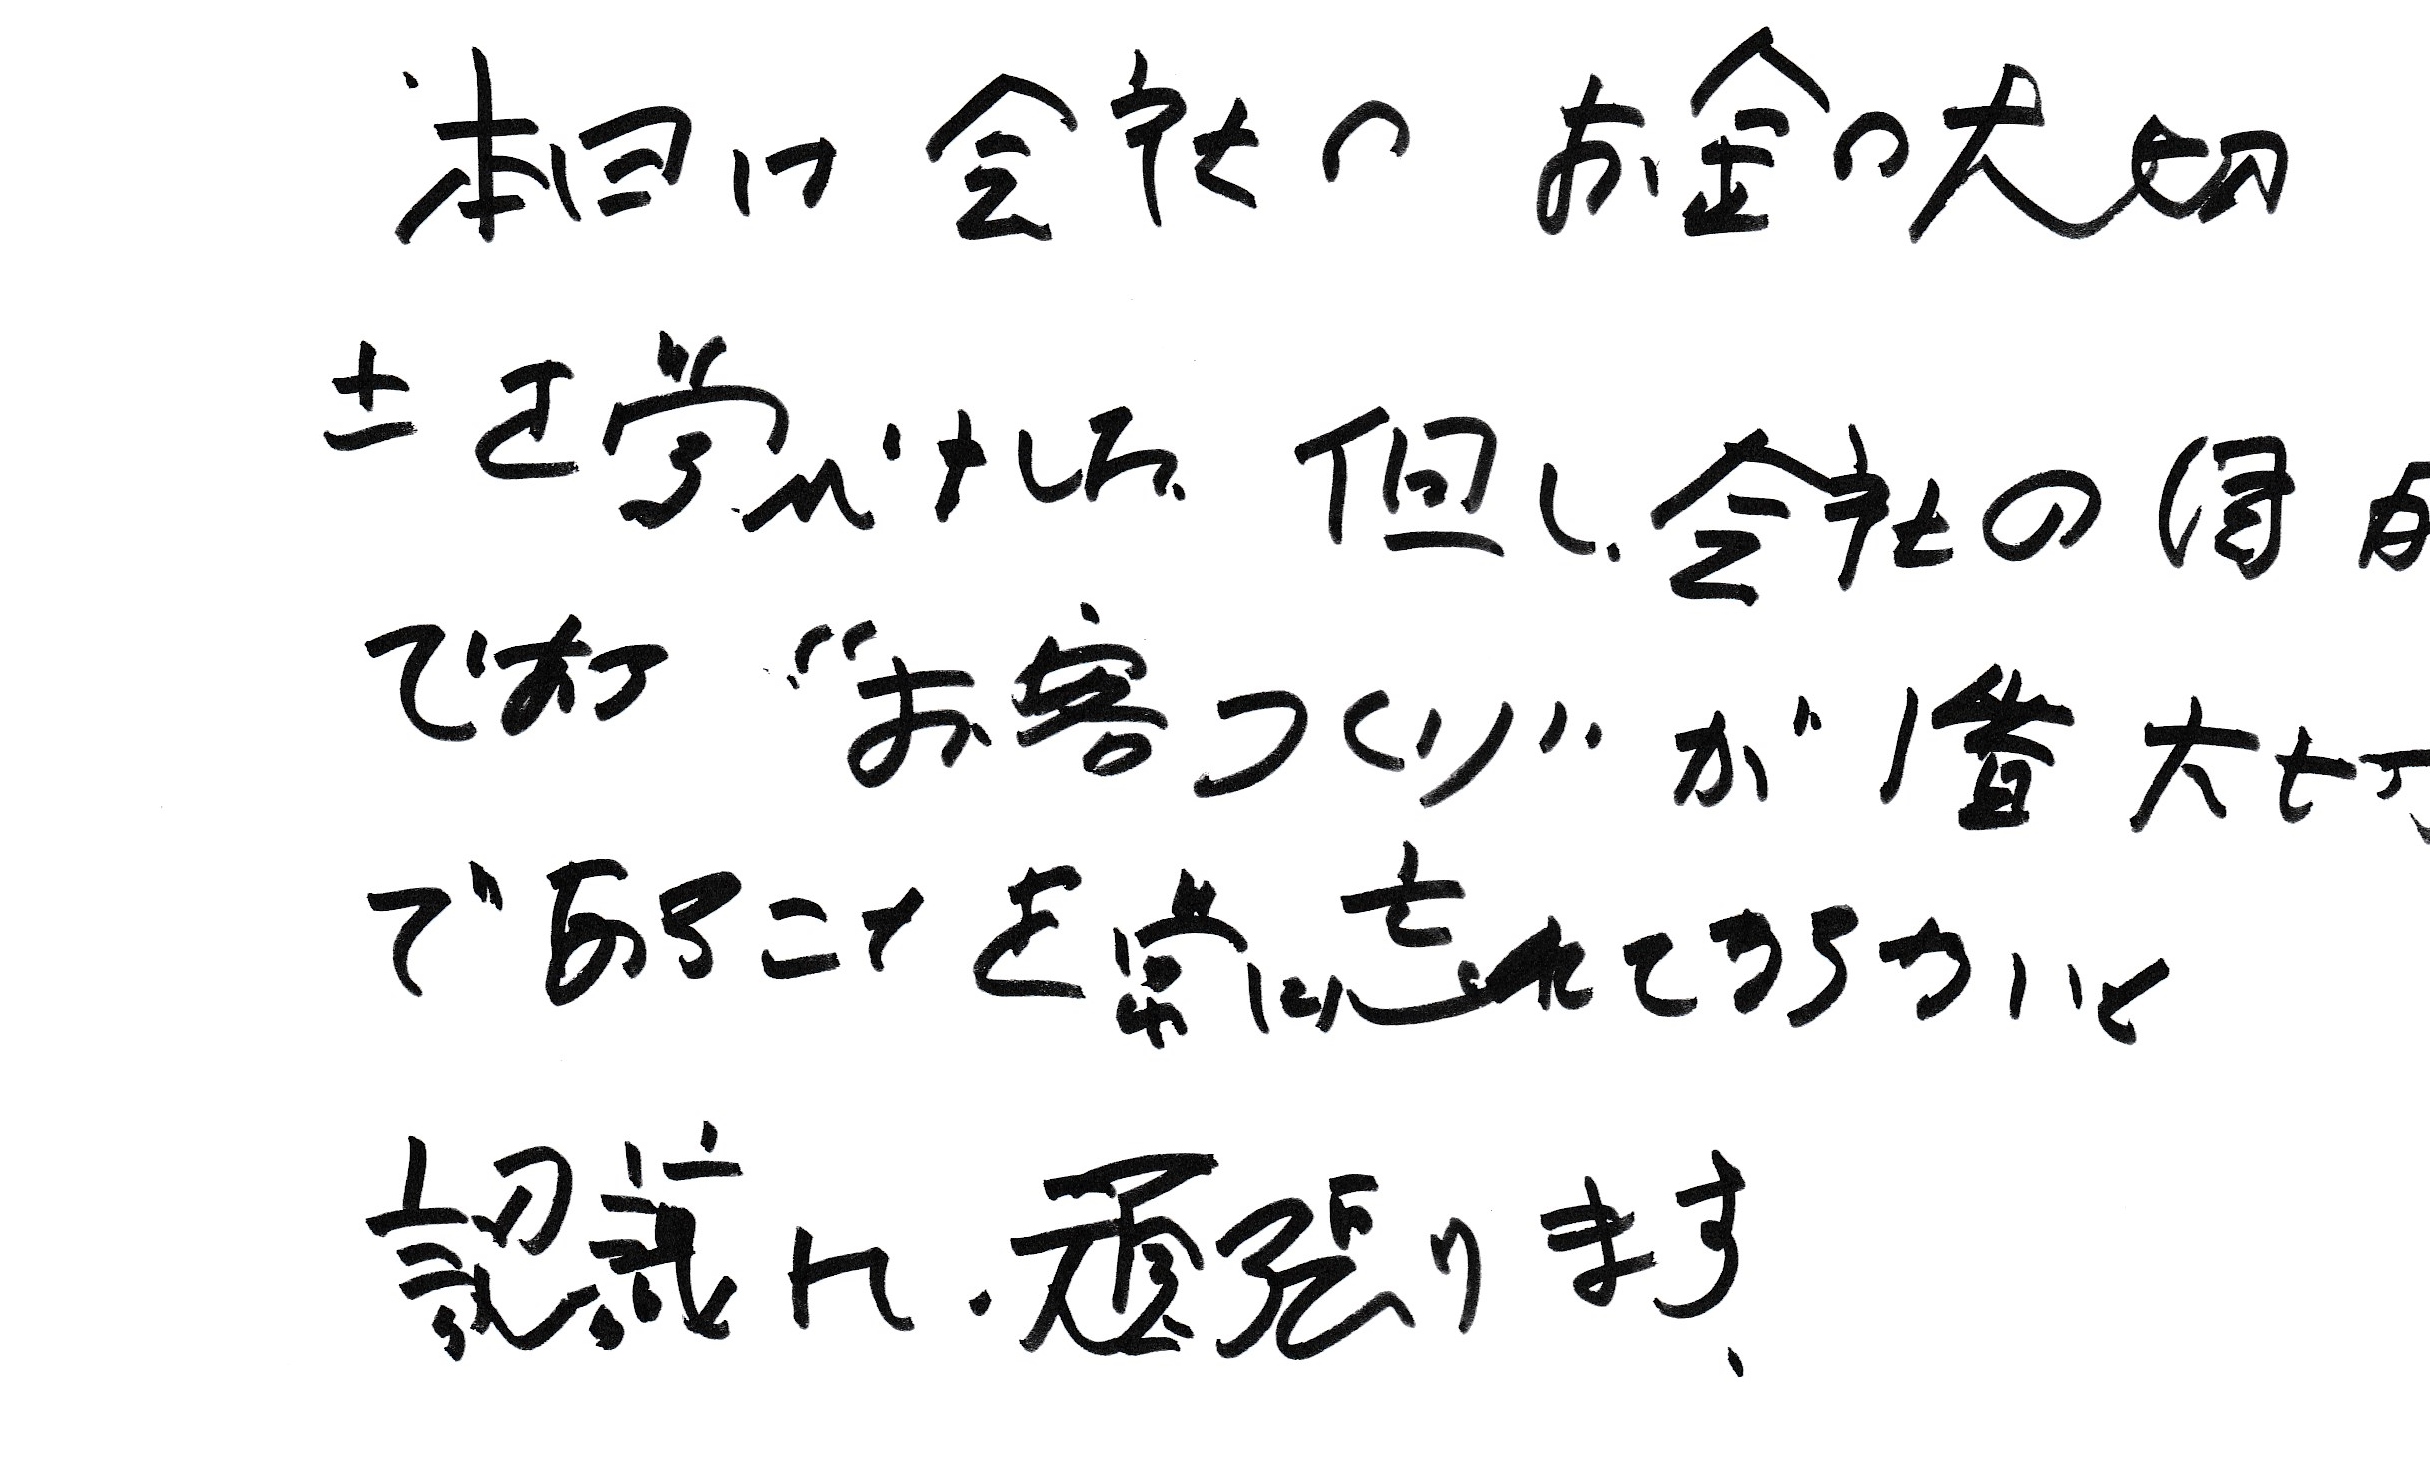 本日は会社のお金の大切
さを学びました。但し、会社の目的
である“お客つくり”が1番大切
であることを常に忘れてはならないと
認識し、頑張ります。